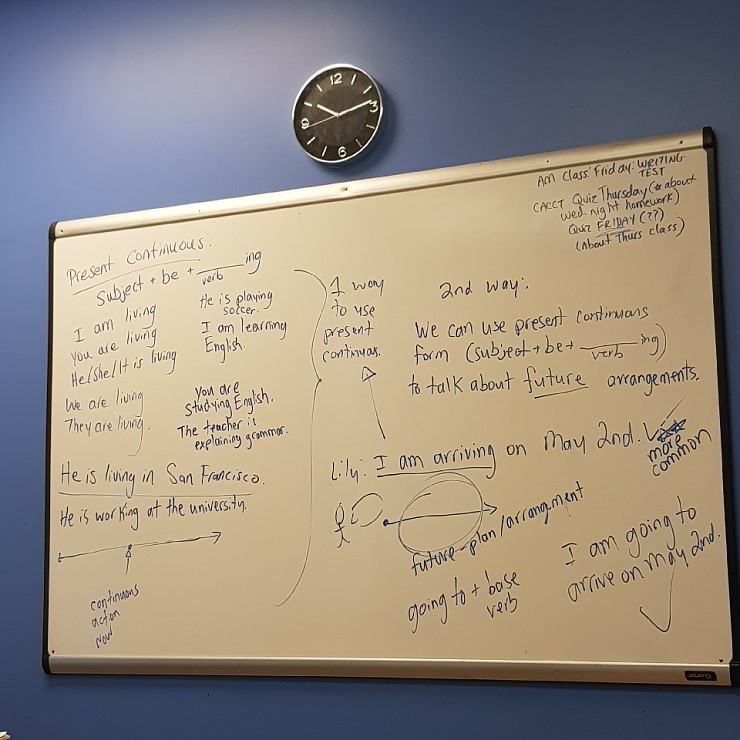 12
3
6
9
Am Class: Friday: WRITING
TEST
CACCT Quiz Thursday (* about
wed. night homework)
Quiz FRIDAY (??)
(About Thurs class)
Present Continuous:
Subject + be + ______ing
verb
I am living
You are living
He/She/It is living
We are living
They are living.
He is playing
soccer.
I am learning
English.
You are
studying English.
The teacher is
explaining grammar.
He is living in San Francisco.
He is working at the university.
continuous
action
now
1 way
to use
present
continuous.
2nd way:
We can use present continuous
form (subject + be + ______ing)
verb
to talk about future arrangements.
Lily: I am arriving on May 2nd.
more
common
future-plan/arrangment
going to + base
verb
I am going to
arrive on May 2nd.
Quartet